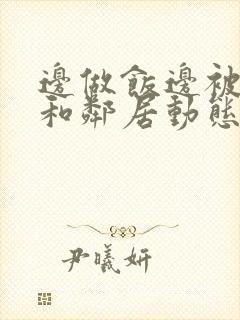 邊做飯邊被
和鄰居動態
尹曦妍